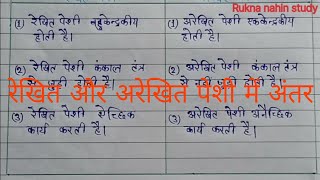 Rukna nahin study
(1) रेखित पेशी बहुकेन्द्रकीय
होती है।
(1) अरेखित पेशी एककेन्द्रकीय
होती है।
(2) रेखित पेशी कंकाल तंत्र
(2) अरेखित पेशी कंकाल तंत्र
रेखित और अरेखित पेशी में अंतर
(3) रेखित पेशी ऐच्छिक
कार्य करती है।
(3) अरेखित पेशी अनैच्छिक
कार्य करती है।